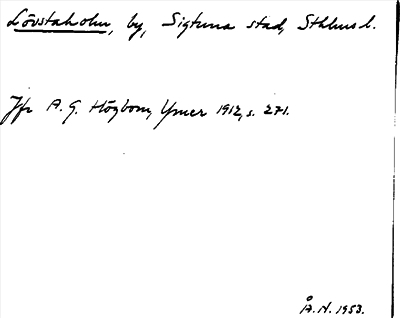 Lövstaholm, by, Sigtuna stad, Sthlms l.
Jfr A. G. Högbom, Ymer 1912, s. 271.
Å. N. 1953.